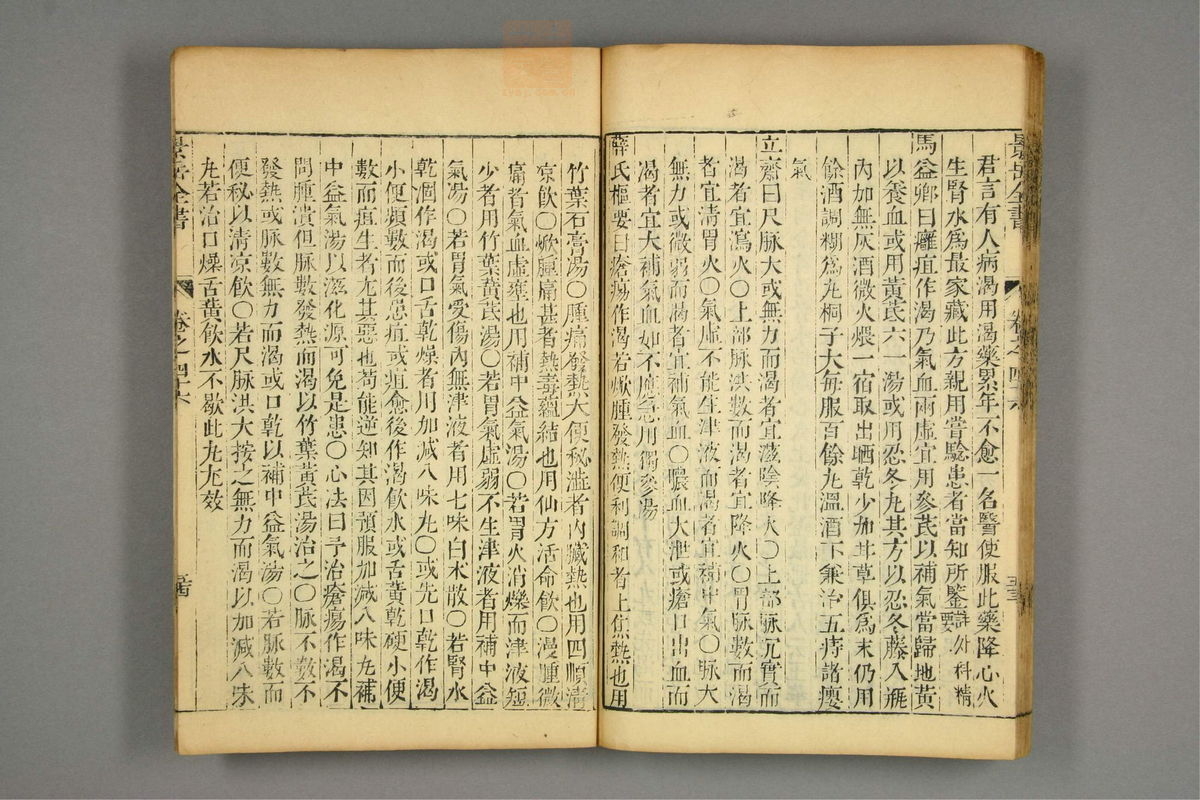 君言有人病渴用渴藥累年不愈一名醫使服此藥降心火
生腎水爲最家藏此方親用嘗驗患者當知所鑒詳外科精要
馬益卿曰癰疽作渴乃氣血兩虛宜用參芪以補氣當歸地黃
以養血或用黃芪六一湯或用忍冬丸其方以忍冬藤入瓶
內加無灰酒微火煨一宿取出晒乾少加甘草俱爲末仍用
餘酒調糊爲丸桐子大每服百餘丸溫酒下兼治五痔諸癭
氣
立齋曰尺脉大或無力而渴者宜滋陰降火○上部脉冗實而
渴者宜瀉火○上部脉洪數而渴者宜降火○胃脉數而渴
者宜清胃火○氣虛不能生津液而渴者宜補中氣○脉大
無力或微弱而渴者宜補氣血○膿血大泄或瘡口出血而
渴者宜大補氣血如不應急用獨參湯
薛氏樞要曰瘡瘍作渴若焮腫發熱便利調和者上焦熱也用
竹葉石膏湯○腫痛發熱大便秘澁者內臟熱也用四順清
凉飲○焮腫痛甚者熱毒蘊結也用仙方活命飲○漫腫微
痛者氣血虛壅也用補中益氣湯○若胃火消爍而津液短
少者用竹葉黃芪湯○若胃氣虛弱不生津液者用補中益
氣湯○若胃氣受傷內無津液者用七味白术散○若腎水
乾涸作渴或口舌乾燥者用加減八味丸○或先口乾作渴
小便頻數而後患疽或疽愈後作渴飲水或舌黃乾硬小便
數而疽生者尤其惡也苟能逆知其因預服加減八味丸補
中益氣湯以滋化源可免是患○心法曰予治瘡瘍作渴不
問腫潰但脉數發熱而渴以竹葉黃芪湯治之○脉不數不
發熱或脉數無力而渴或口乾以補中益氣湯○若脉數而
便秘以清凉飲○若尺脉洪大按之無力而渴以加減八味
丸若治口燥舌黃飲水不歇此丸尤效
景岳全書
卷之四十六
景岳全書
卷之四十六